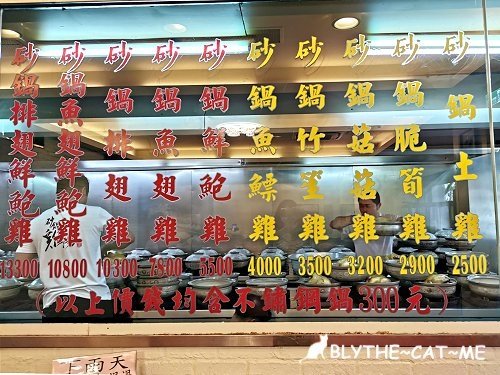 砂鍋排翅鮮鮑雞 13300
砂鍋魚翅鮮鮑雞 10800
砂鍋排翅雞 10300
砂鍋魚翅雞 7800
砂鍋鮮鮑雞 5500
砂鍋魚鰾雞 4000
砂鍋竹笙雞 3500
砂鍋菇菇雞 3200
砂鍋脆筍雞 2900
砂鍋土雞 2500
(以上價錢均含不鏽鋼鍋300元)
下雨天
BLYTHE~CAT~ME
BLYTHE~CAT~ME